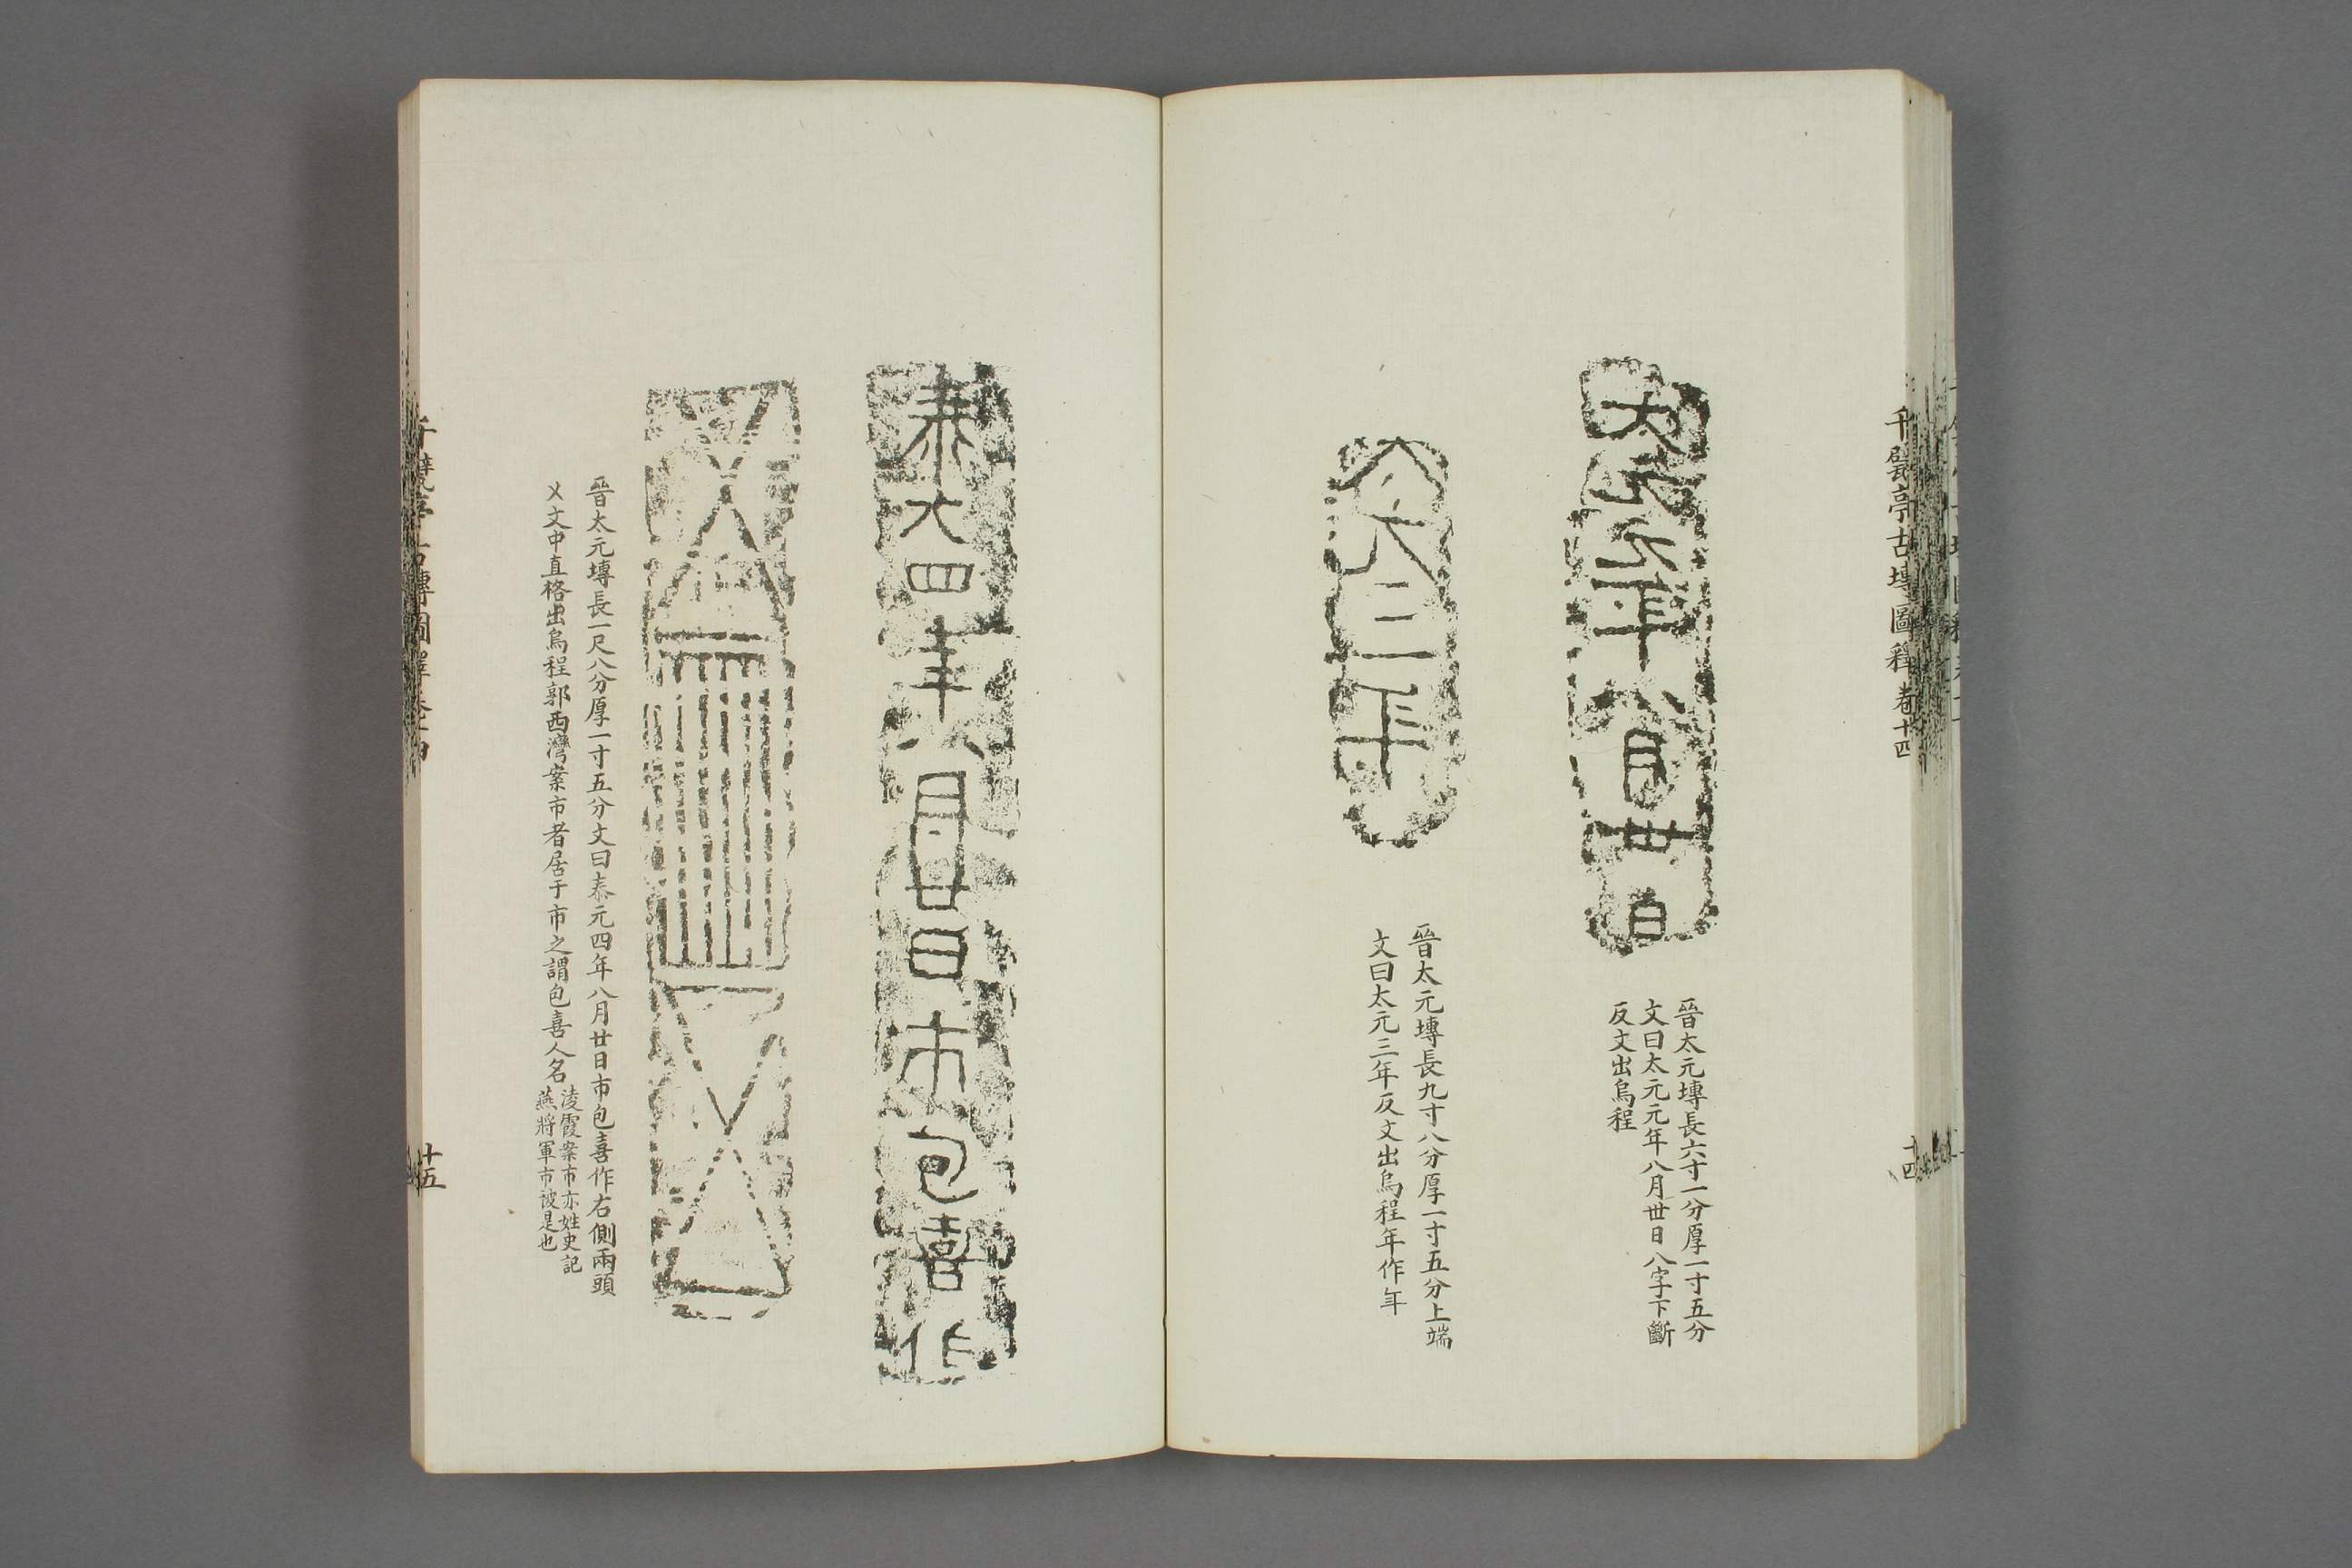 千甓亭古塼圖釋卷十四
十四
晉太元塼長六寸一分厚一寸五分
文曰太元元年八月丗日八字下斷
反文出烏程
晉太元塼長九寸八分厚一寸五分上端
文曰太元三年反文出烏程年作年
泰元四年八月廿日市包喜作
晉太元塼長一尺八分厚一寸五分文曰泰元四年八月廿日市包喜作右側兩頭
乂文中直格出烏程郭西灣案市者居于市之謂包喜人名
淩霞案市亦姓史記
燕將軍市被是也
千甓亭古塼圖釋卷十四
十五